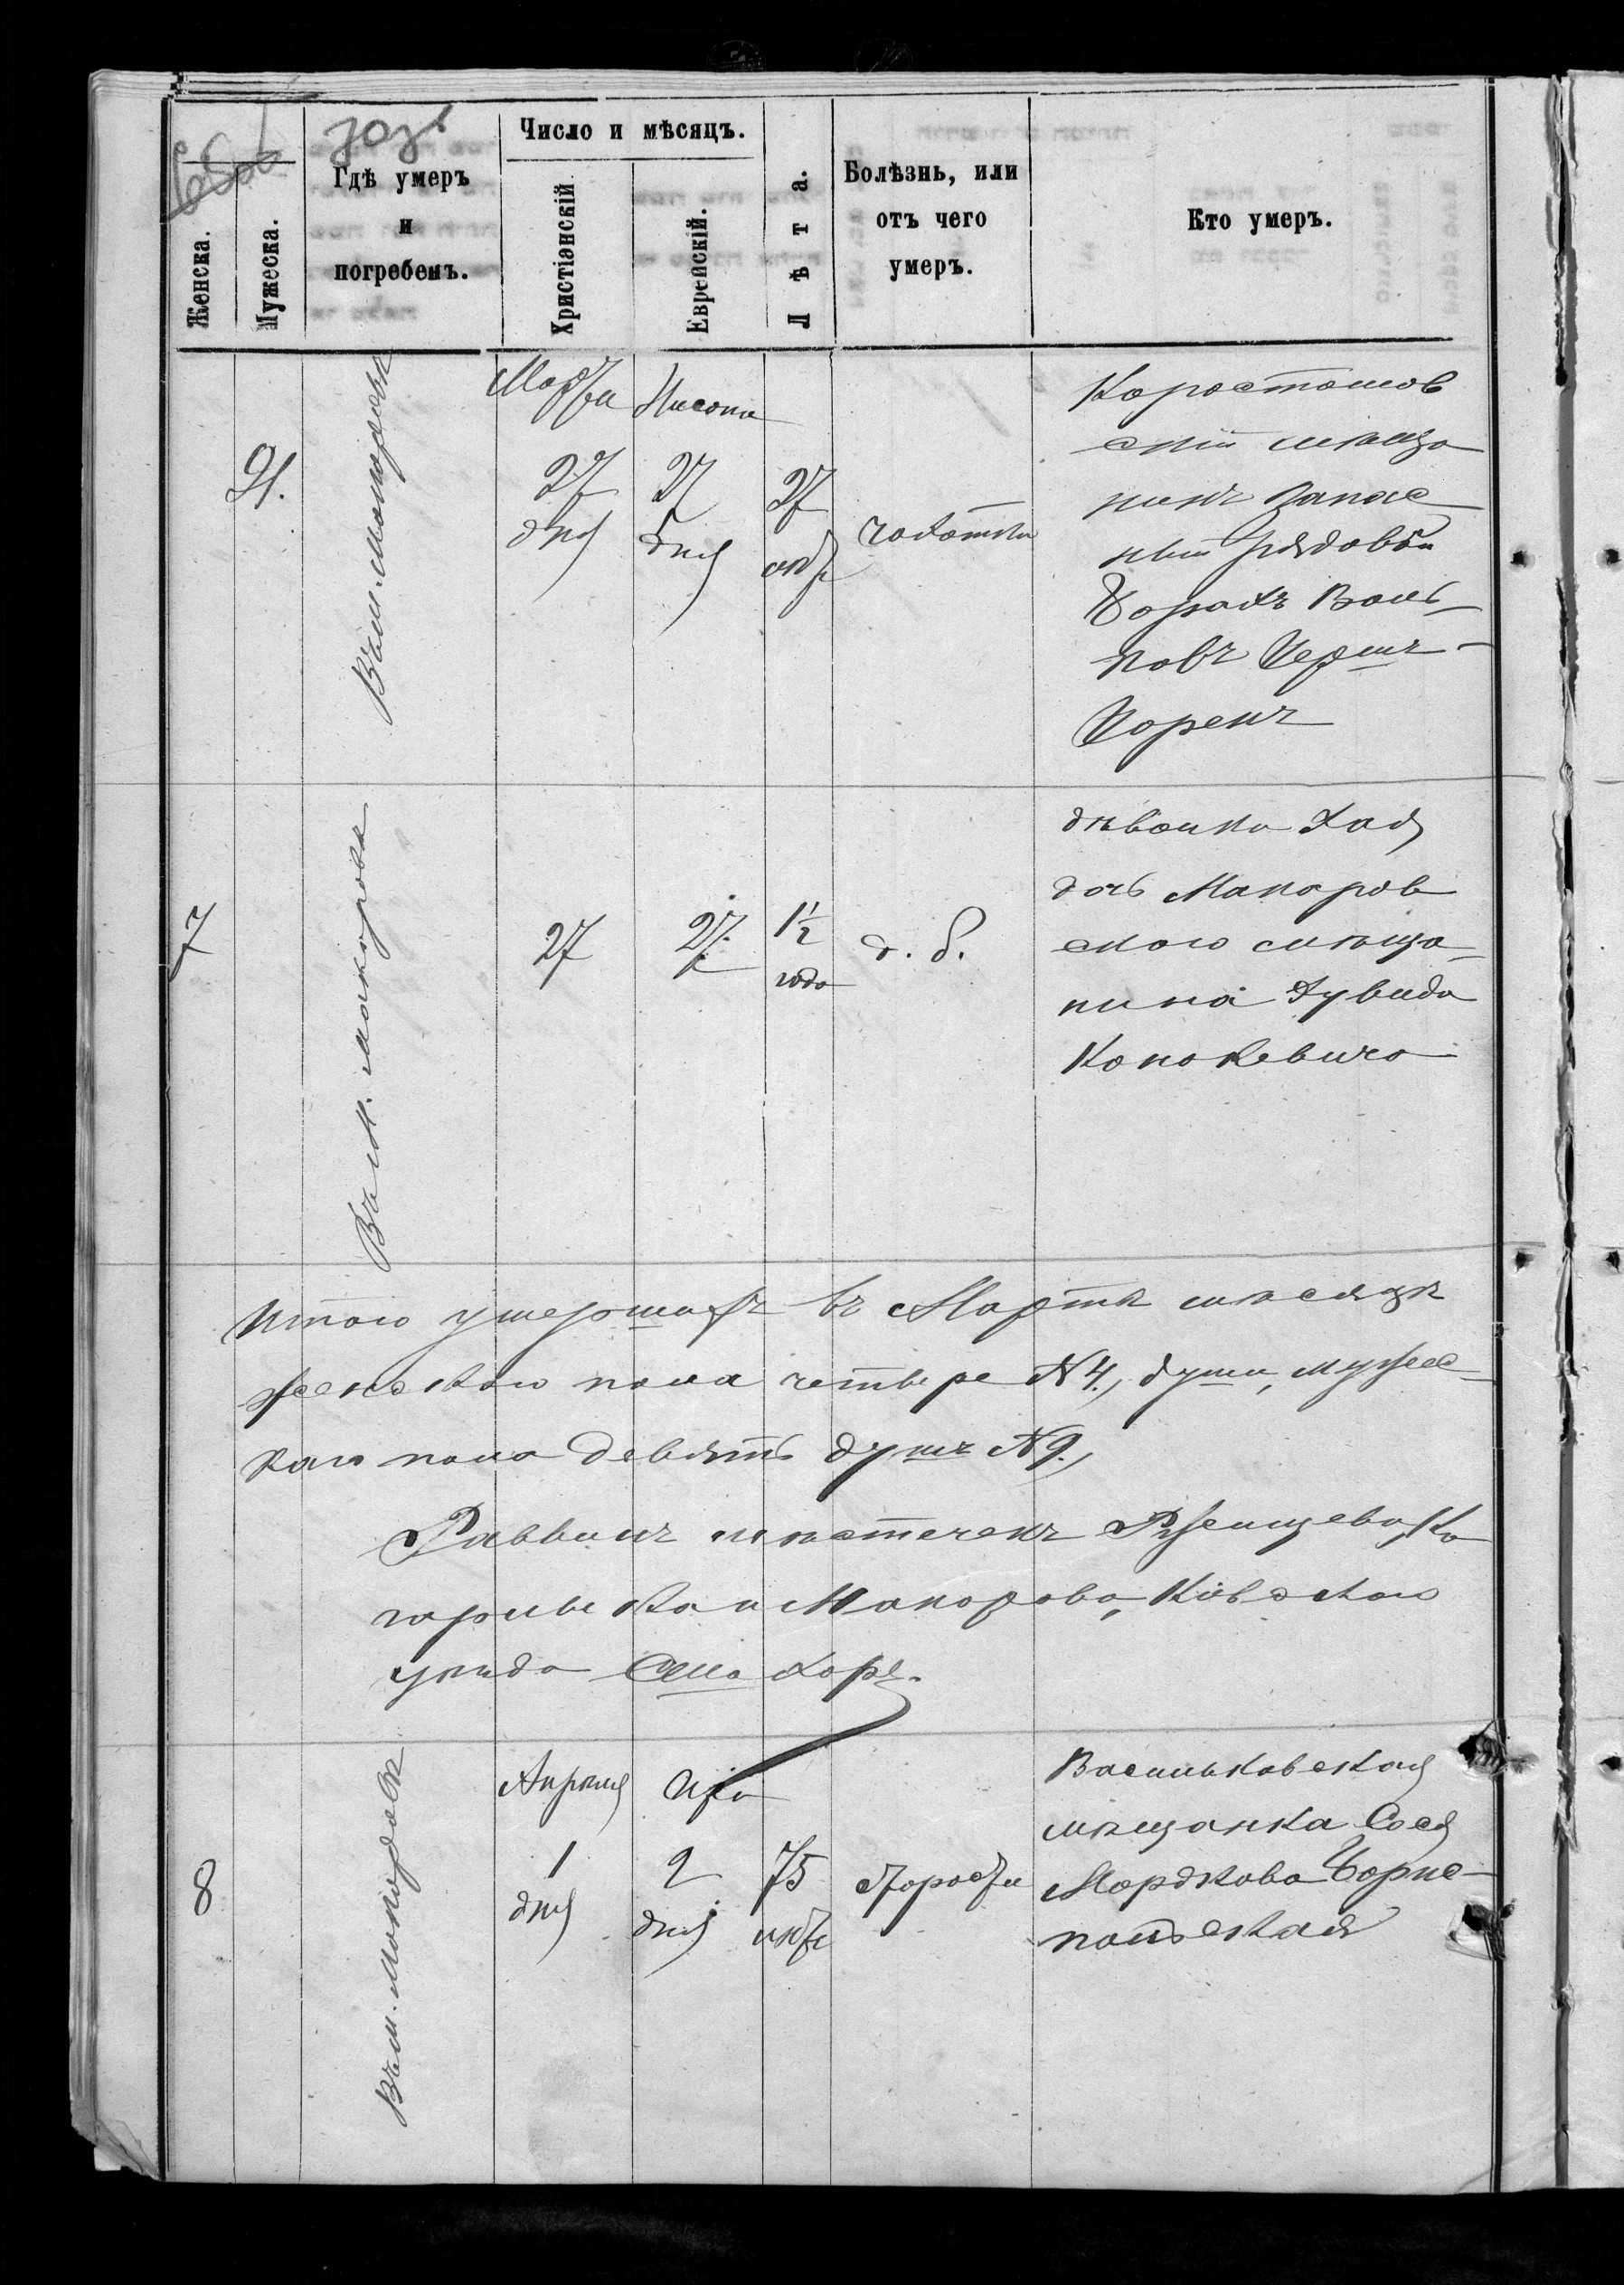 Женска.
Мужеска.
Гдѣ умеръ
и
погребенъ.
Число и мѣсяцъ.
Христіэнскій
Еврейскій.
Лѣта.
Болѣзнь, или
отъ чего
умеръ.
Кто умеръ.
21.
Въ м. Макаровѣ
Марта
27
дня
Нисона
27
дня
27
лѣтъ
чахотки
Коростышов
скій мѣща
нинъ запас
ный рядовой
Борахъ Воль
ковъ Герш
7
Въ м. Макаровѣ
27
27
1½
года
д. б.
дѣвочка Хая
дочь Макаров
ского мѣща
нина Дувида
Итого умершихъ въ Мартѣ мѣсяцѣ
женского пола четверо N 4., души, мужес
каго пола девять душъ N 9.,
Раввинъ мѣстечекъ Ржищева, Ка
гарлыка и Макарова, Кіевского
уѣзда
8
Въ м. Макаровѣ
Апрѣля
1
дня
Ира
2
дня
75
лѣтъ
старости
Васильковская
мѣщанка Сося
Мордкова Чорно
польская